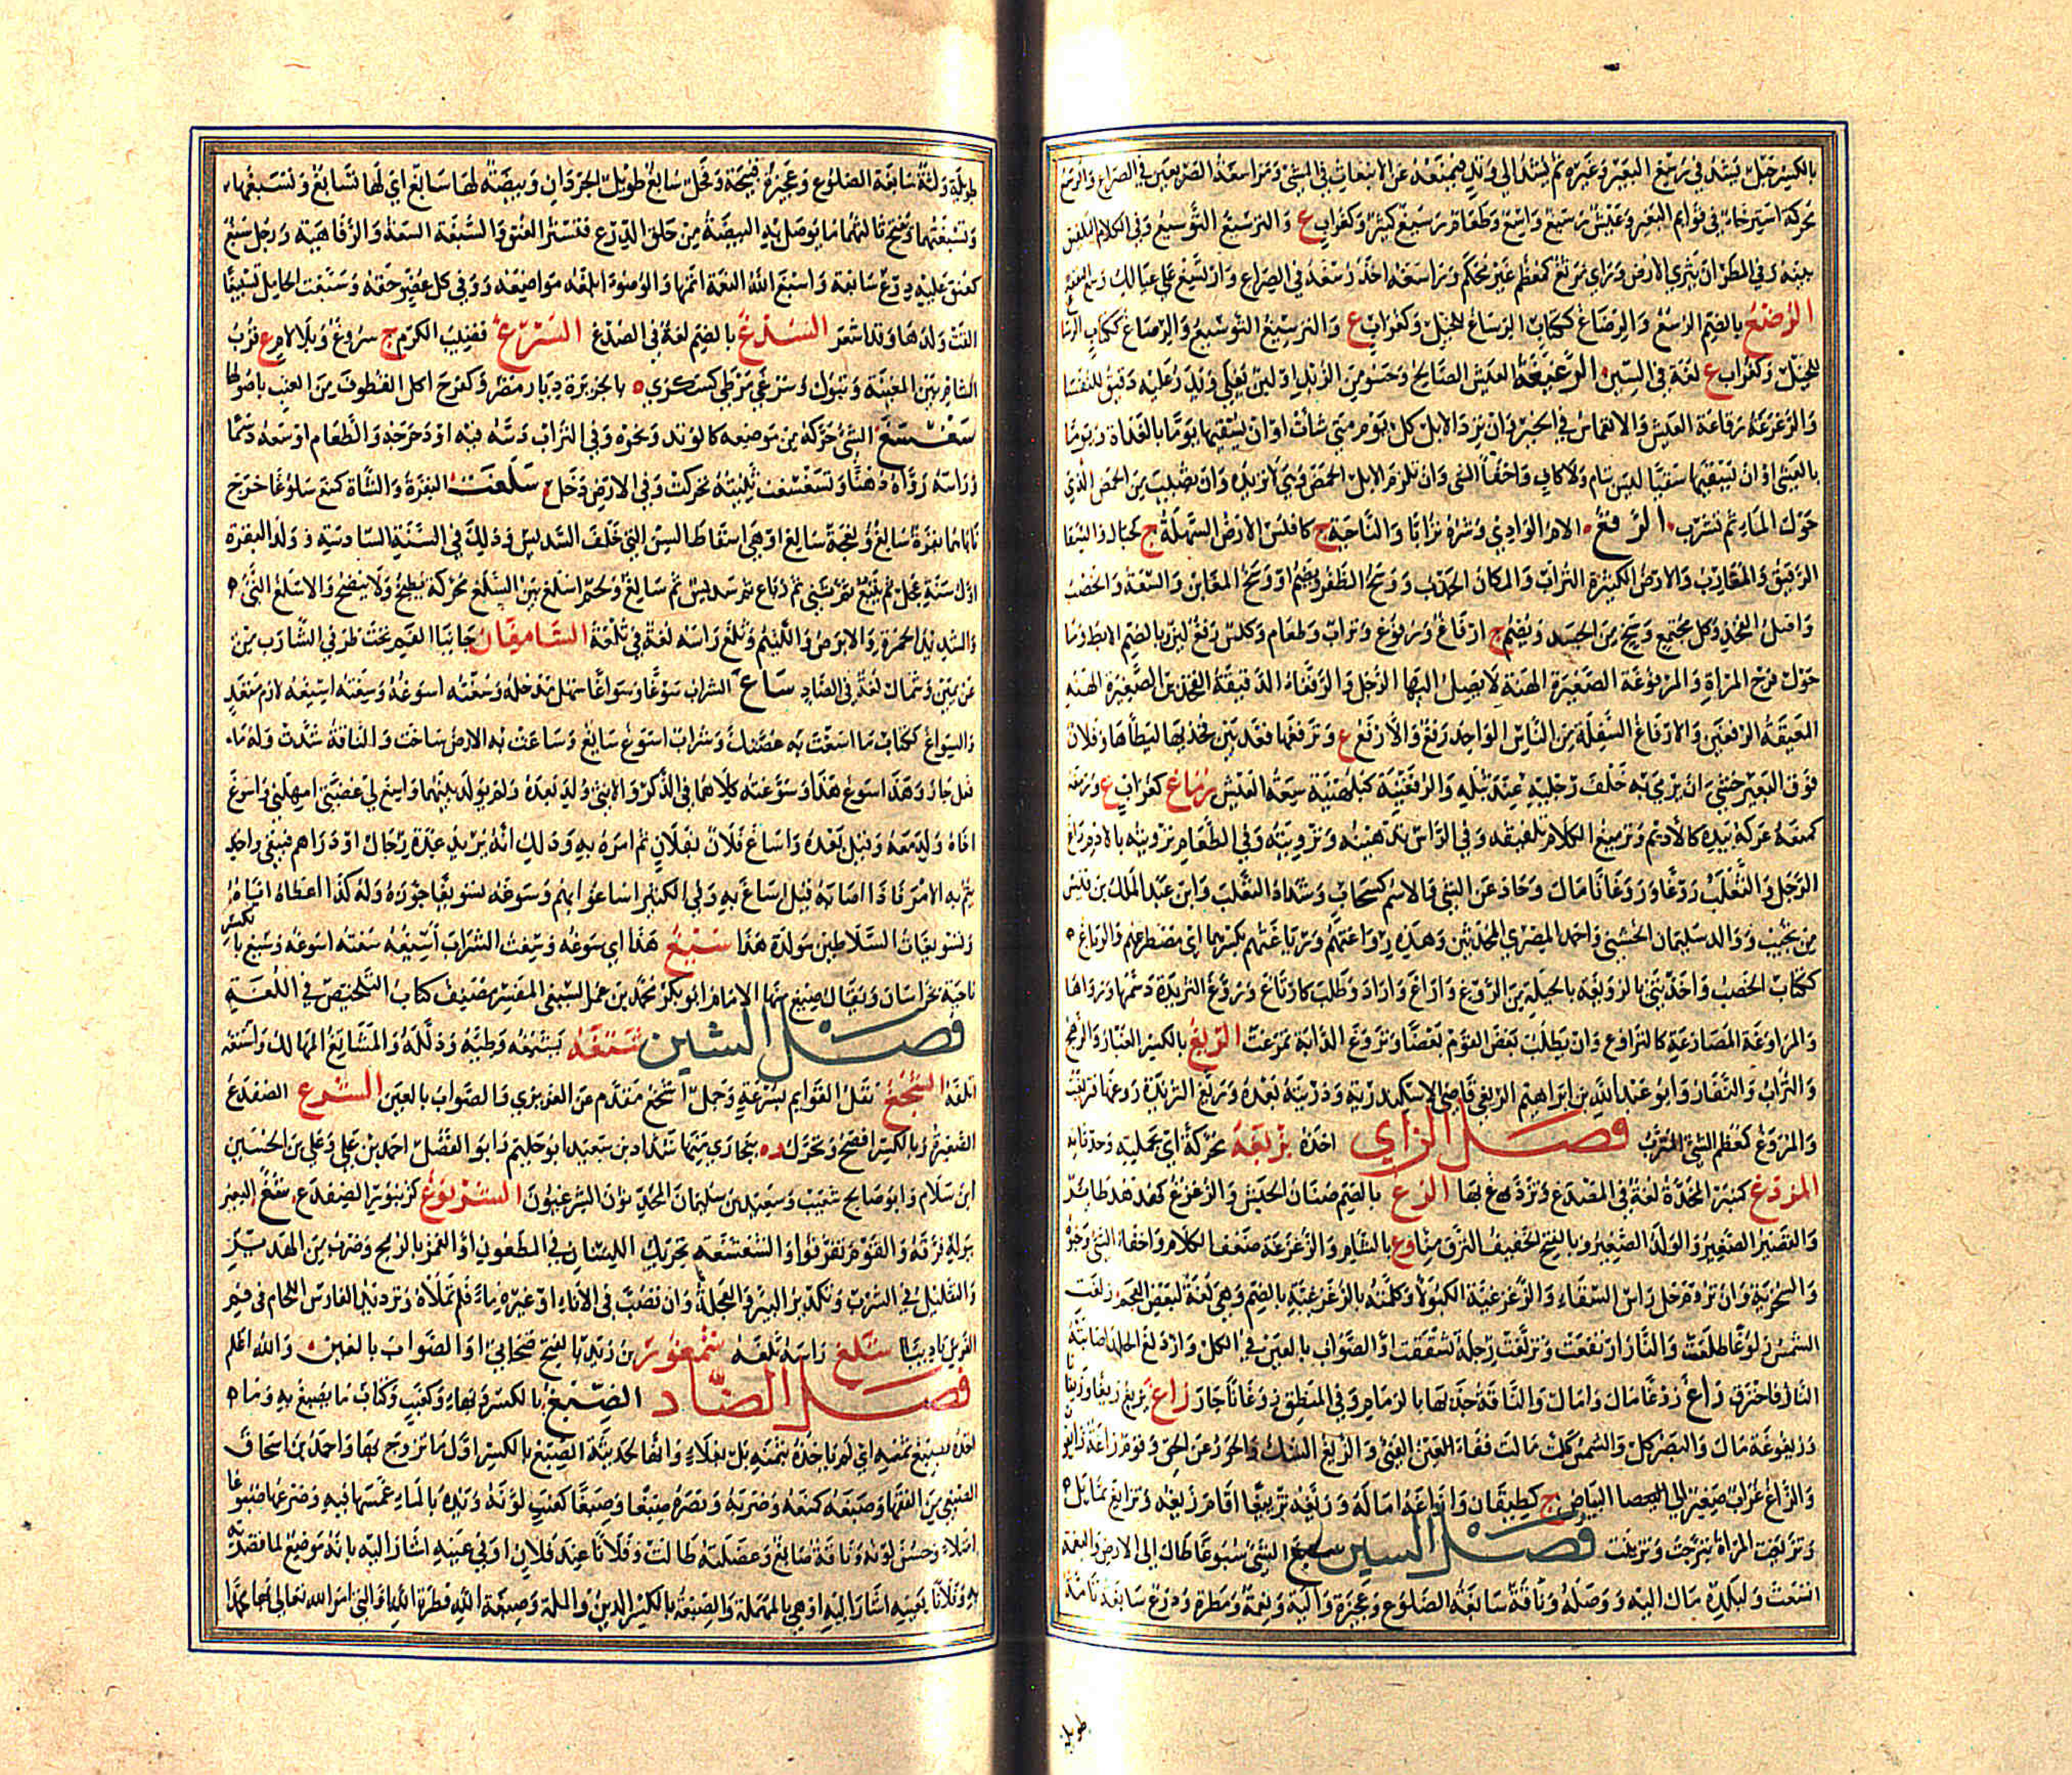 بالكسر حبل يشد في رسغ البعير وغيره ثم يشد الى وتد فيمنعه عن الانبعاث في المشي ومراسغة الصريعين في الصراع
محركة استرخاء في قوايم البعير وعيش رسيغ واسع وطعام رسيغ كثير وكغراب ع والترسيغ التوسيع وفي الكلام التلفيق
بينه وفي المطر ان يثرى الارض وراي مرسغ كمعظم غير محكم وراسغه اخذ رسغه في الصراع وارتسغ على عيالك
الرصغ بالضم الرسغ والرصاغ ككتاب الرساغ للحبل وكغراب ع والترسيغ التوسيع والرصاغ ككتاب
للحبل وكغراب ع لغة في السين الرغيغة العيش الصالح وحسو من الزبد او لبن يغلى ويذر عليه دقيق للنفسا
والرغرغة رفاغة العيش والانغماس في الخير وان ترد الابل كل يوم متى شات او ان يسقيها يوما بالغداة ويوما
بالعشي او ان يسقيها سقيا ليس بتام ولا كاف واخفا الشي وان تلزم الابل الحمض وهي لا تريده وان تصيب من الحمض الذي
حول الماء ثم تشرب الرفغ الام الوادي وشره ترابا والناحية ج كافلس الارض السهلة ج كجبال والسقا
الرقيق المقارب والارض الكثيرة التراب والمكان الجدب ووسخ الظفر ويضم او وسخ المغابن والسعة والخصب
واصل الفخذ وكل مجتمع وسخ من الجسد ويضم ج ارفاغ ورفوغ وتراب وطعام وكلس رفغ لين بالضم الابط وما
حول فرج المراة والمرفوغة الصغيرة الهنة لا يصل اليها الرجل والرفغاء الدقيقة الفخذين الصغيرة الهنة
العميقة الرفغين والارفاغ السفلة من الناس الواحد رفغ والارفغ ع وترفغها قعد بين فخذيها ليطاها وفلان
فوق البعير خشي ان يرمي به خلف رجليه عند ثيله والرفغنية كبلهنية سعة العيش رماغ كغراب ع ورمغه
كمنعه عركه بيده كالاديم وترميغ الكلام تلفيقه وفي الراس تدهينه وترويته وفي الطعام ترويته بالادم راغ
الرجل والثعلب روغا وروغانا مال وحاد عن الشي والاسم كسحاب وسماء الثعلب وابن عبد الملك بن قيس
من تجيب ووالد سليمان الخشني واحمد المصري المحدثين وهذه رواغتهم ورياغتهم بكسرهما اي مصطرعهم والرياغ
ككتاب الخصب واخذتني بالرويغة بالحيلة من الروغ واراغ واراد وطلب كارتاغ وروغ الثريدة دسمها ورواها
والمراوغة المصارعة كالتراوغ وان يطلب بعض القوم بعضا وتروغ الدابة تمرغت الريغ بالكسر الغبار والرهج
والتراب والنفار وابو عبد الله بن ابراهيم الريغي قاضي الاسكندرية وذريته بعده وتريغ الثريدة
والمروغ كمعظم الشي المترب فصل الزاي اخذه بزبغه محركة اي بحمليته وحدثانه
المزدغ كمنبر المخدة لغة في المصدغ وتزدغ بها الزغ بالضم صنان الحبش والزغزغ كهدهد طاير
والقصير الصغير والولد الصغير وبالفتح الخفيف النزق منا وع بالشام والزغزغة ضعف الكلام واخفا الشي
والسخرية وان تروم حل راس السقاء والزغزغية الكبولا وكلمته بالزغزغية بالضم وهي لغة لبعض العجم زلغت
الشمس زلوغا طلعت والنار ارتفعت وتزلغت رجله تشققت او الصواب بالعين في الكل وازدلغ الجلد اصابته
النار فاحترق زاغ زوغا مال وامال والناقة جذبها بالزمام وفي المنطق زوغانا جار زاغ يزيغ زيغا وزيغانا
وزيغوغة مال والبصر كل والشمس مالت ففاء الفيء والزيغ الشك والجور عن الحق وقوم زاغة زايغون
والزاغ غراب صغير الى البياض ج كطيقان وازاغه اماله وزيغه تزييغا اقام زيغه وتزايغ تمايل
وتزيغت المراة تبرجت وتزينت فصل السين سبغ الشي سبوغا طال الى الارض والنعمة
اتسعت ولبلده مال اليه ووصله وناقة سابغة الضلوع وعجيزة والية ونعمة ومطرة ودرع سابغة تامة
طويلة
طويلة ولثة سابغة الضلوع وعجيزة قبيحة وفحل سابغ طويل الجردان وبيضة لها سابغ اي لها تسابغ وتسبغها
وتسبغتها وتفتح ثالثهما ما توصل به البيضة من حلق الدرع فتستر العنق والسبغة السعة والرفاهية ورجل سبغ
كعنق عليه درع سابغة واسبغ الله النعمة اتمها والوضوء ابلغه مواضعه ووفى كل عضو حقه وسبغت الحامل تسبيغا
القت ولدها وقد اشعر السدغ بالضم لغة في الصدغ السرغ قضيب الكرم ج سروغ وبلا لام ع قرب
الشام بين المغيثة وتبوك وسرغى مرطى كسكرى بالجزيرة ديار مضر وكفرح اكل القطوف من العنب باصولها
سغسغ الشي حركه من موضعه كالوتد ونحوه وفي التراب دسه فيه او دحرجه والطعام اوسعه دسما
وراسه رواه دهنا وتسغسغت ثنيته تحركت وفي الارض دخل سلغت البقرة والشاة كمنع سلوغا خرج
ناباها بقرة سالغ ونعجة سالغ او هي اسقاطها السن التي خلف السديس وذلك في السنة السادسة وولد البقرة
اول سنة عجل ثم تبيع ثم ثني ثم رباع ثم سديس ثم سالغ ولحم اسلغ بين السلغ محركة يطبخ ولا ينضج والاسلغ الني
والشديد الحمرة والابرص واللئيم وسلغ راسه لغة في ثلغه السامغان جانبا الفم تحت طرفي الشارب من
عن يمين وشمال لغة في الصاد ساغ الشراب سوغا وسواغا سهل مدخله وسغته اسوغه وسيغته اسيغه لازم متعد
والسواغ ككتاب ما اسغت به غصتك وشراب اسوغ سايغ وساغت به الارض ساخت والناقة شذت وله ما
فعل جاز وهذا سوغ هذا وسوغته كلاهما في الذكر والانثى ولد بعده ولم يولد بينهما واسغ لي غصتي امهلني واسوغ
اخاه ولد معه وقيل بعده واساغ فلان بفلان تم امره به وذلك انه يريد عدة رجال او دراهم فيبقى واحد
يتم به الامر فاذا اصابه قيل اساغ به وفي الكثير اساغوا بهم وسوغه تسويغا جوزه وله كذا اعطاه اياه
وتسويغات السلاطين مولدة هذا سيغ هذا اي سوغه وسغت الشراب اسيغه سغته اسوغه وسيغ بالكسر
ناحية بخراسان ويقال صيغ منها الامام ابو بكر محمد بن عمر السيغي المفسر مصنف كتاب التلخيص في اللغة
فصل الشين شتغه يشتغه وطئه وذلله والمشاتغ المهالك واشتغه
اتلفه الشجغ نقل القوايم بسرعة وجمل اشجغ متقدم عن العزيزي والصواب بالعين الشرغ الضفدع
الصغيرة وبالكسر افصح ويحرك و ه ببخارى منها شداد بن سعيد ابو حليم وابو الفضل احمد بن علي وعلي بن الحسين
ابن سلام وابو صالح شعيب وسعيد بن سليمان المحدثون الشرغيون الشربوغ كزنبور الضفدع شغ البعير
ببوله فرقه والقوم تفرقوا والشغشغة تحريك اللسان في المطعون او الغمز بالرمح وضرب من الهدير
والتقليل في الشرب وتكدير البير والعجلة وان تصب في الاناء او غيره ماء فلم تملاه وترديد الفارس اللجام في فم
الفرس تاديبا شلغ راسه ثلغه شمغور بن زيد بالفتح صحابي او الصواب بالعين والله اعلم
فصل الصاد الصبغ بالكسر وبهاء وكعنب وكتاب ما يصبغ به وما
اخذه بصبغ ثمنه اي لم ياخذه بثمنه بل بغلاء وانها لحديثة الصبغ بالكسر اول ما تزوج بها واحمد بن اسحاق
الصبغي من الفقهاء وصبغه كمنعه وضربه ونصره صبغا وصبغا كعنب لونه ويده بالماء غمسها فيه وضرعها صبوغا
امتلاء وحسن لونه وناقة صابغ وعضلته طالت وفلانا عند فلان او في عينه اشار اليه بانه موضع لما قصد
وفلانا بعينه اشار اليه او هي بالمهملة والصبغة بالكسر الدين والملة وصبغة الله فطرة الله او التي امر الله تعالى بها محمدا